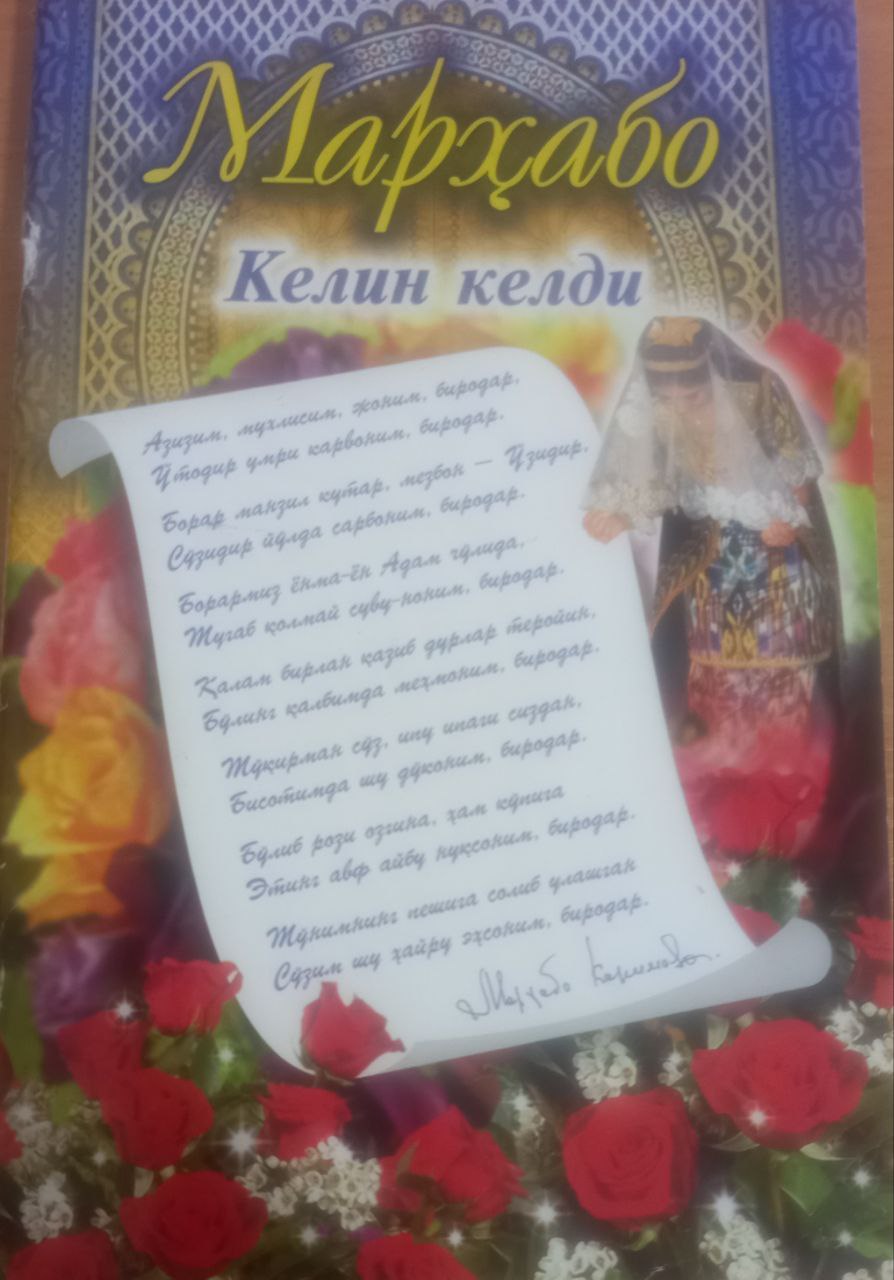 Марҳабо
Келин келди
Азизим, мухлисим, жоним, биродар,
Ўтодир умри карвоним, биродар.
Борар манзил кутар, мезбон — Ўзидир,
Сўзидир йўлда сарбоним, биродар.
Борармиз ёнма-ён Адам чўлида,
Тугаб қолмай суву-ноним, биродар.
Қалам бирлан қазиб дурлар теройин,
Бўлинг қалбимда меҳмоним, биродар.
Тўқирман сўз, ипу ипаги сиздан,
Бисотимда шу дўконим, биродар.
Бўлиб рози озгина, ҳам кўпига
Этинг авф айбу нуқсоним, биродар.
Тўнимнинг пешига солиб улашган
Сўзим шу ҳайру эҳсоним, биродар.
Марҳабо Каримова.